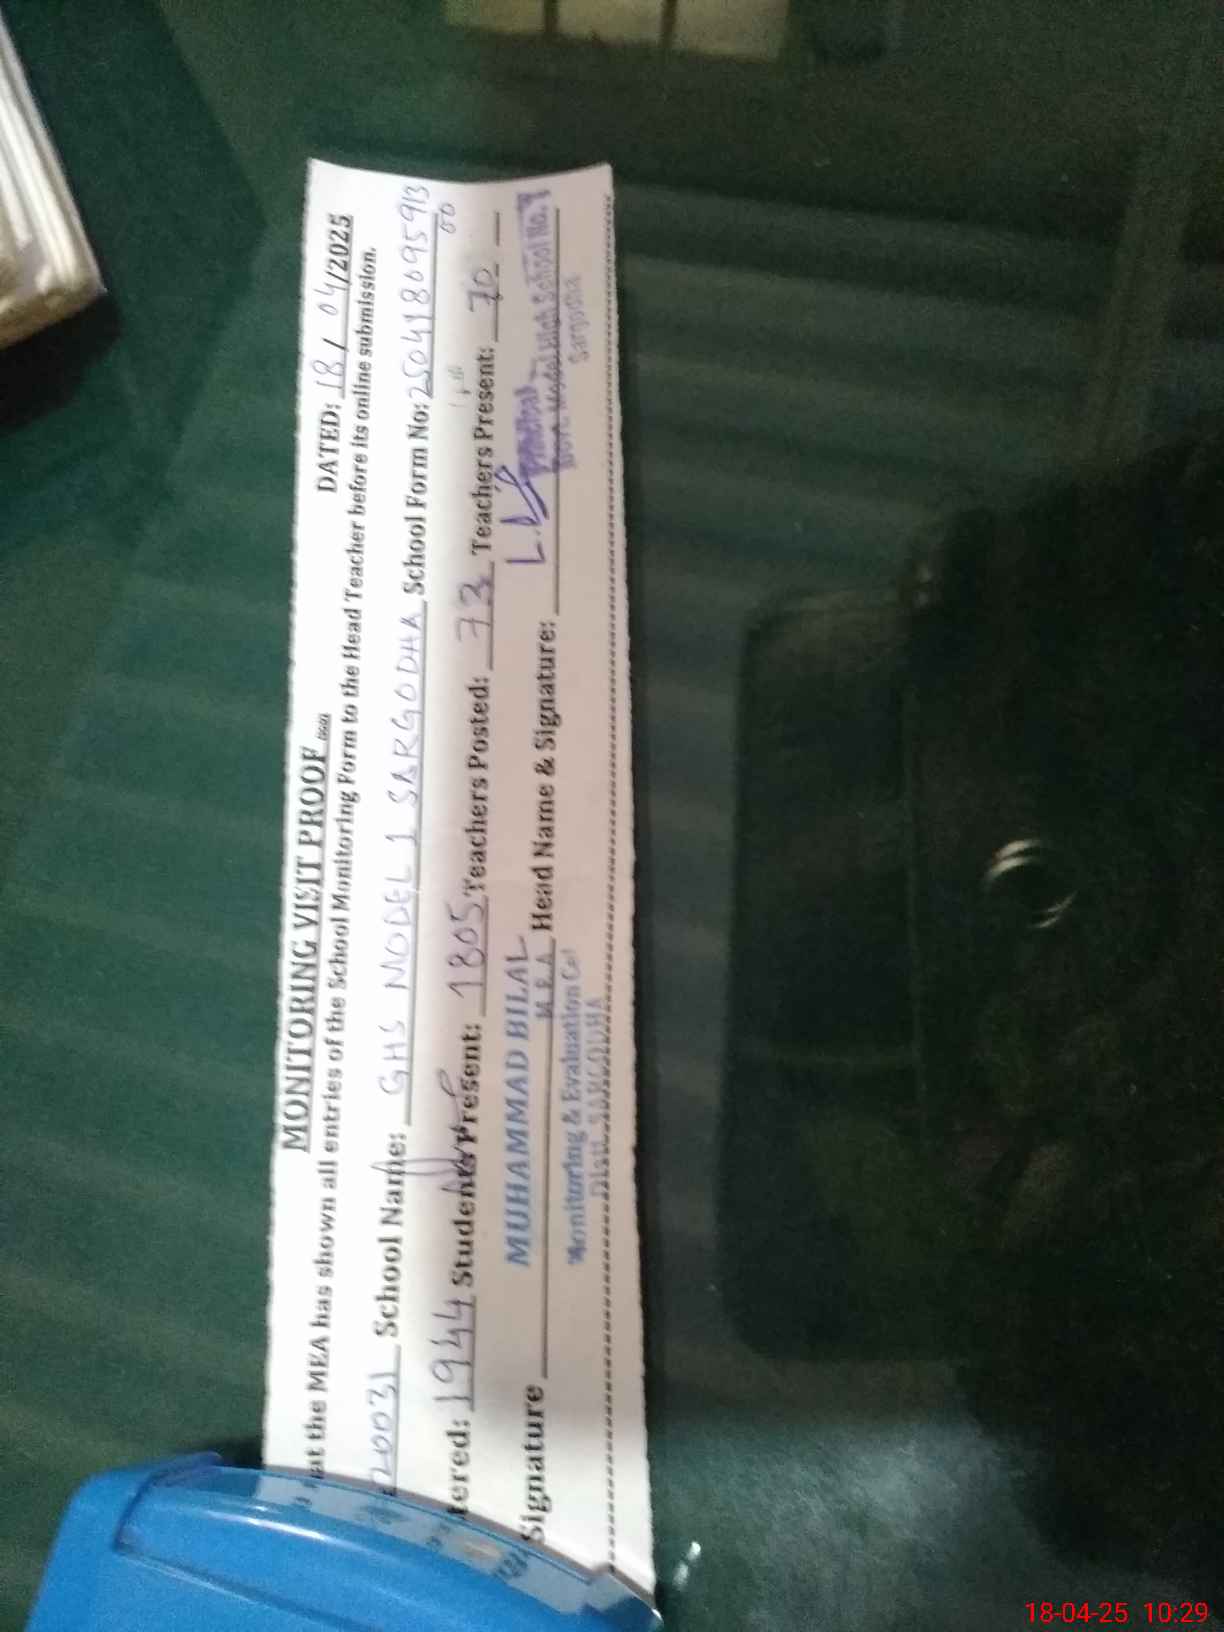 MONITORING VISIT PROOF
DATED: 18/ 04/2025
at the MEA has shown all entries of the School Monitoring Form to the Head Teacher before its online submission.
20031 School Name: GHS MODEL 1 SARGODHA School Form No: 250418095913
00
tered: 1944 Students Present: 1805 Teachers Posted: 73 Teachers Present: 70
Signature MUHAMMAD BILAL Head Name & Signature: Principal
M.E.A Govt. Model High School No. 1
Monitoring & Evaluation Cell Sargodha
Distt. SARGODHA
18-04-25 10:29